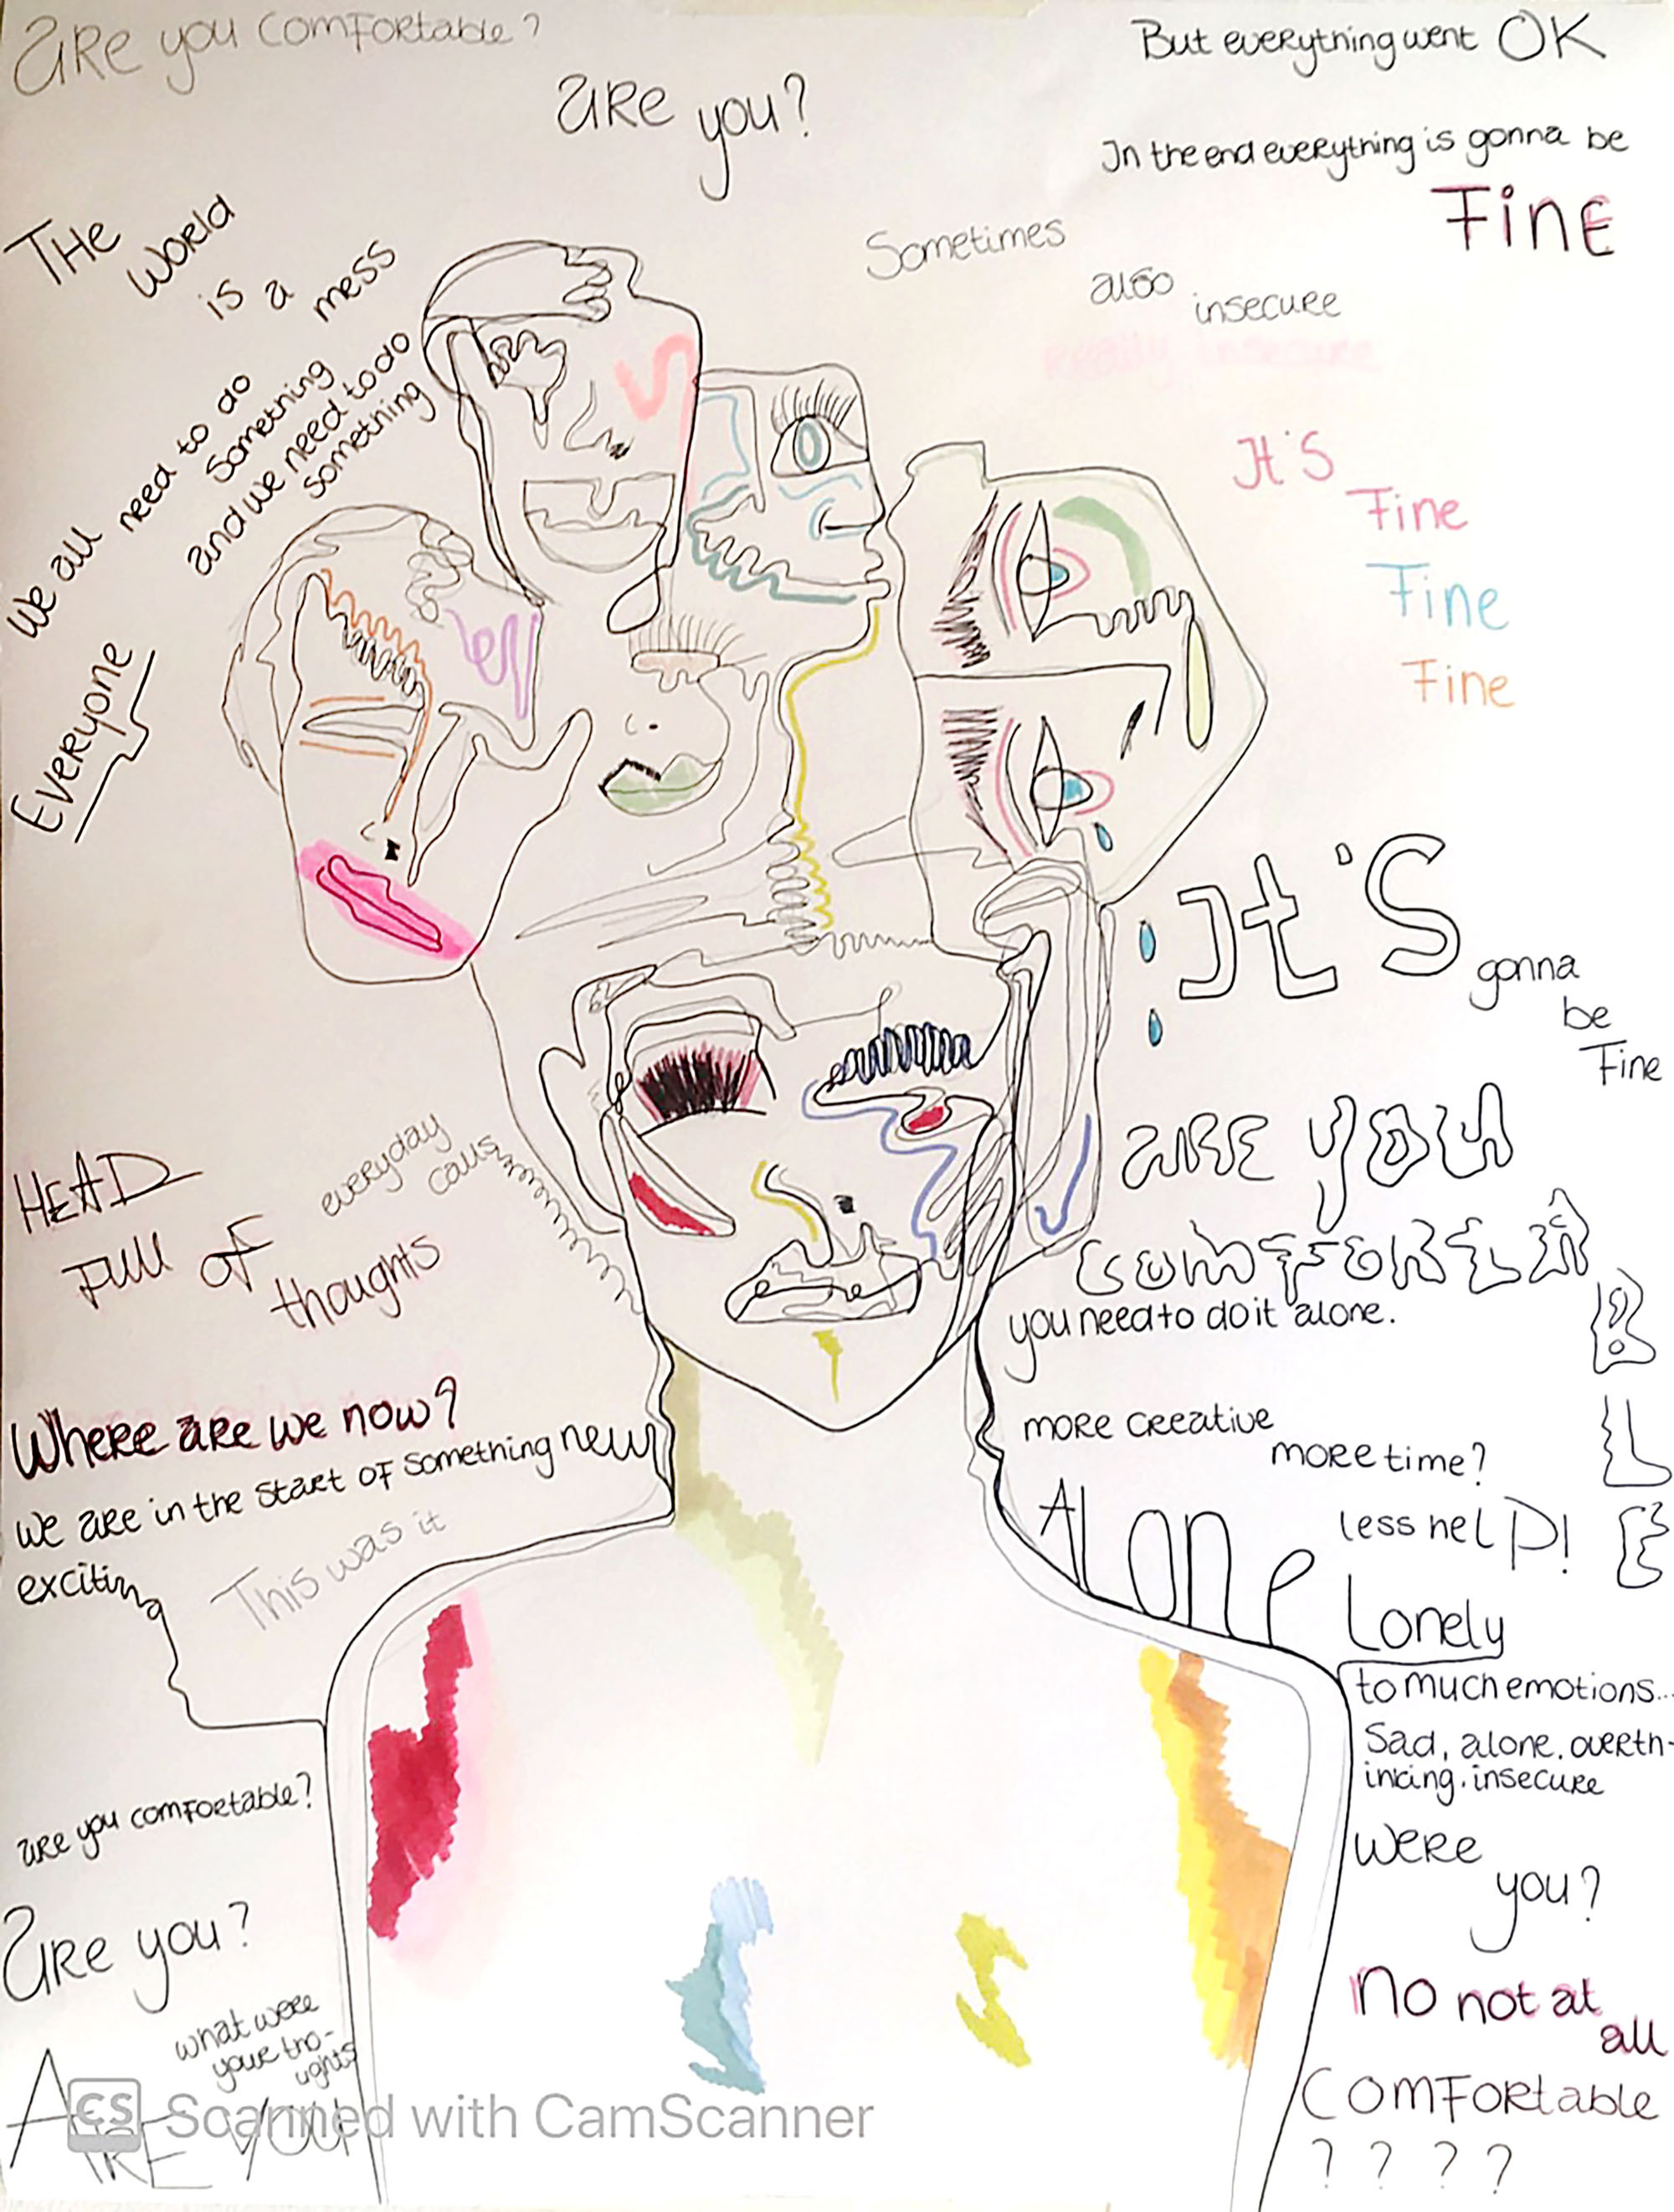 are you comfortable?
are you?
But everything went OK
In the end everything is gonna be
Fine
Sometimes
also
insecure
Really insecure
THe
world
is a
mess
We all
need to do
something
and we need to do
something
Everyone
It's
Fine
Fine
Fine
It's
gonna
be
Fine
are you
comfortable
you need to do it alone.
more creative
more time?
Alone
less help!
Lonely
to much emotions...
Sad, alone. overth-
inking. insecure
were
you?
no not at
all
Comfortable
? ? ? ?
HEAD
Full of
thoughts
everyday
calls
Where are we now?
we are in the start of something new
exciting
This was it
are you comfortable?
are you?
what were
your tho-
ughts
ARE YOU
CS Scanned with CamScanner